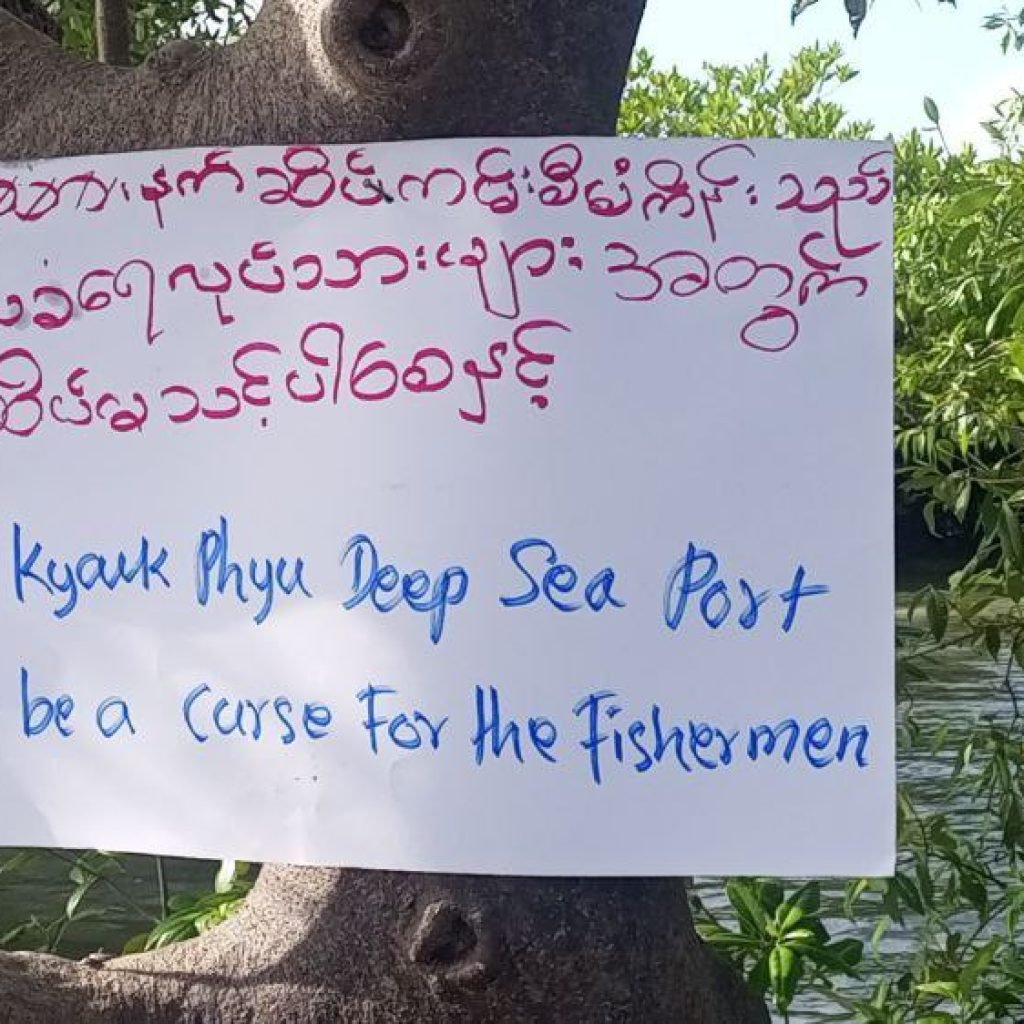 နက်ဆိပ်ကမ်းစီမံကိန်း သည်
ရေလုပ်သားများ အတွက်
သင့်ပါစေနှင့်
Kyauk Phyu Deep Sea Port
be a curse For the Fishermen